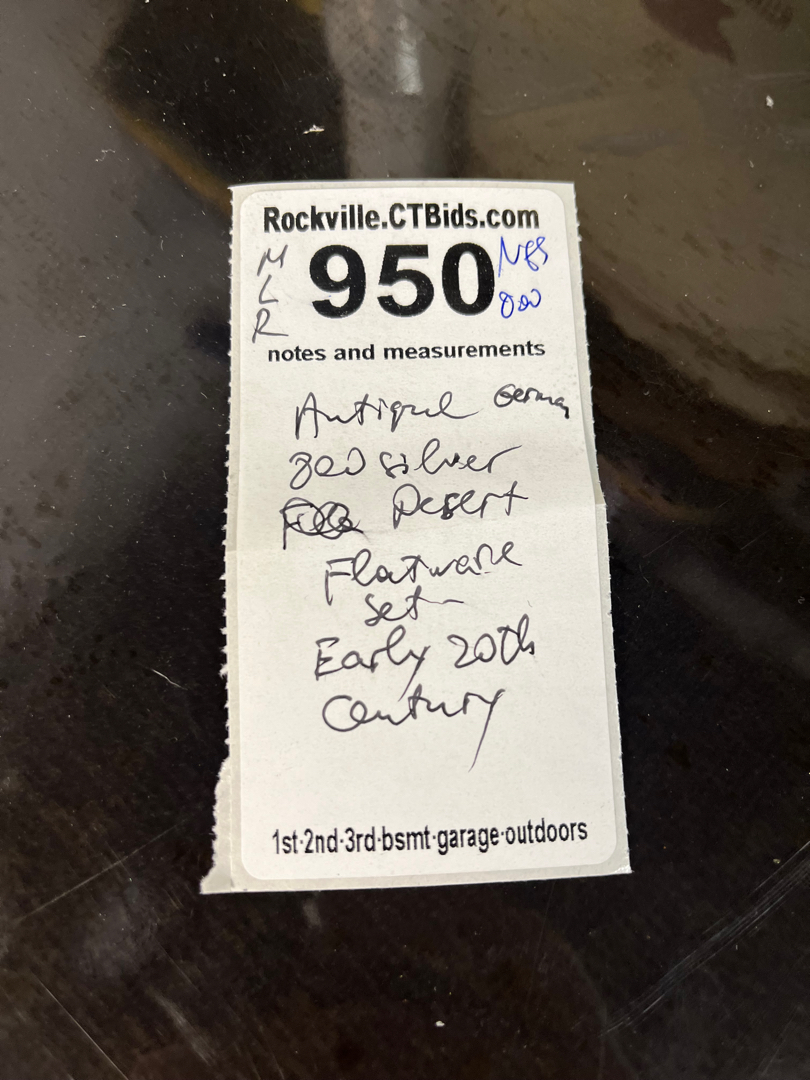 Rockville.CTBids.com
M
L
R
950
800
notes and measurements
Antique German
800 silver
Desert
Flatware
set
Early 20th
Century
1st·2nd·3rd·bsmt·garage·outdoors